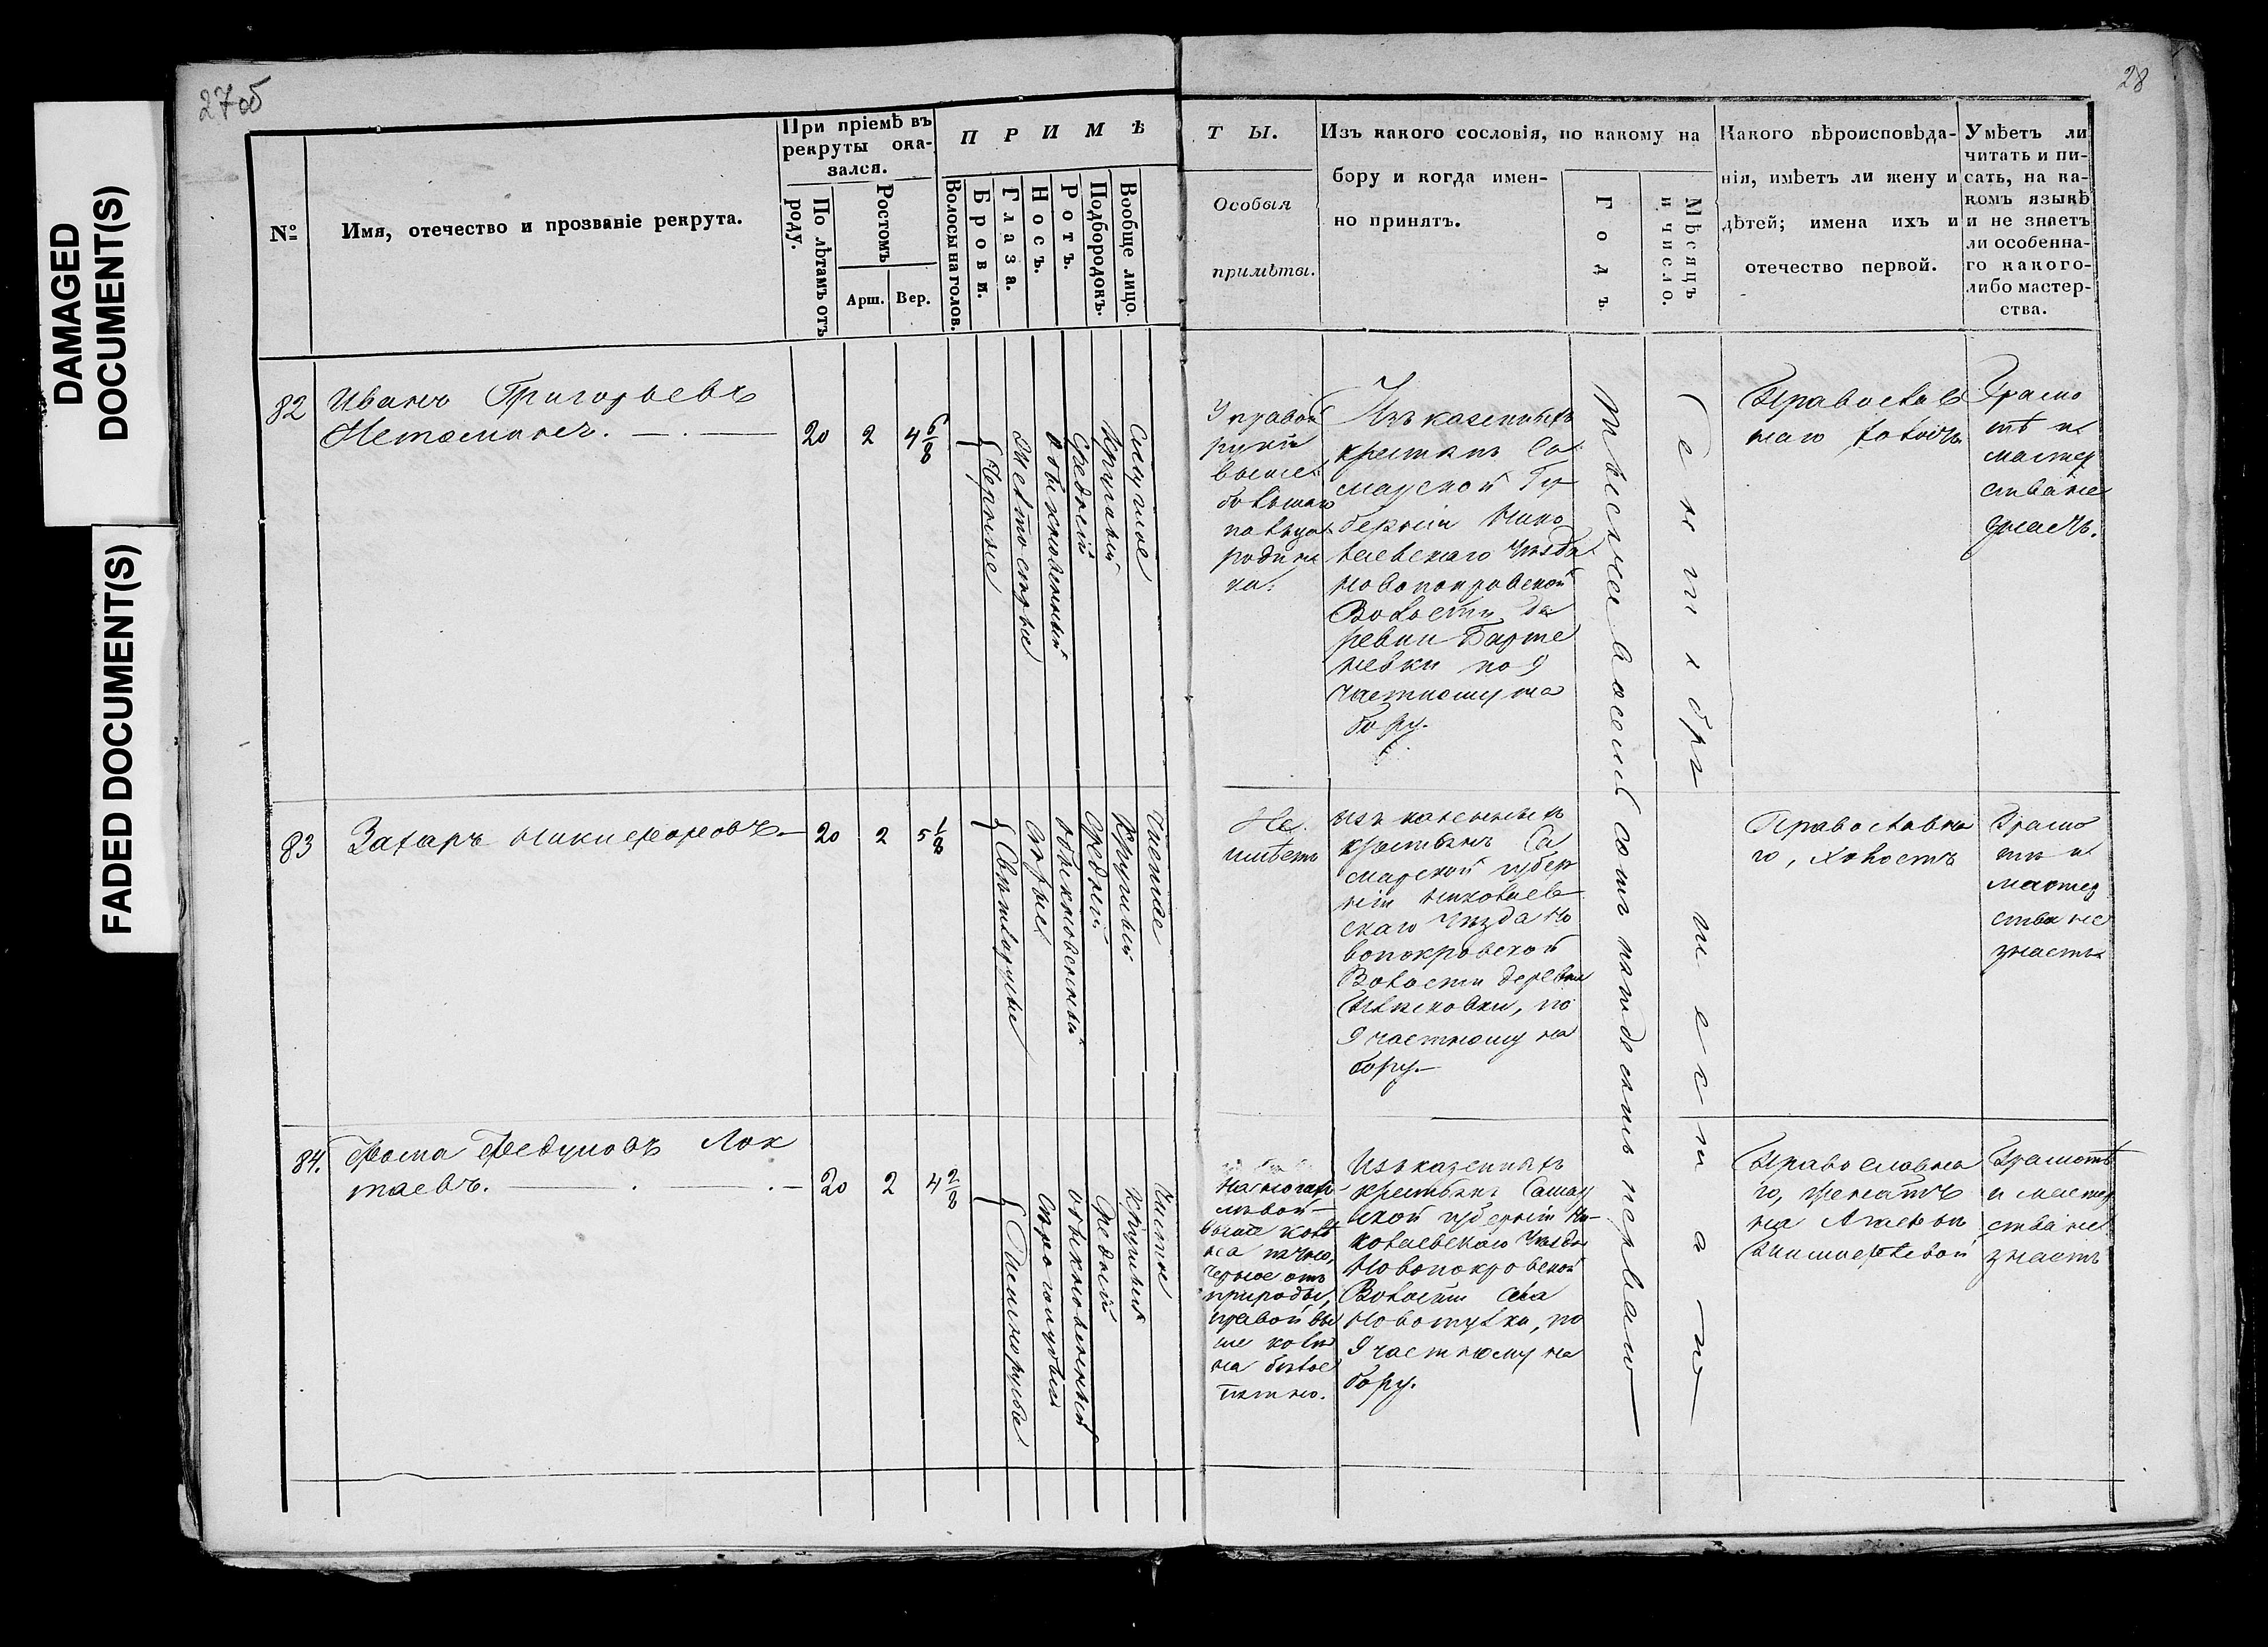 DAMAGED
DOCUMENT(S)
FADED DOCUMENT(S)
27об
28
№
Имя, отечество и прозваніе рекрута.
При пріемѣ въ
рекруты ока-
зался.
По лѣтамъ отъ
роду.
Ростомъ
Арш.
Вер.
ПРИМѢ
Волосы на голов.
Брови.
Глаза.
Носъ.
Ротъ.
Подбородокъ.
Вообще лицо.
ТЫ.
Особыя
примѣты.
Изъ какого сословія, по какому на
бору и когда имен-
но принятъ.
Годъ
Мѣсяцъ
и число.
Какого вѣроисповѣда-
нія, имѣетъ ли жену и
дѣтей; имена ихъ и
отечество первой.
Умѣетъ ли
читать и пи-
сать, на ка-
комъ языкѣ
и не знаетъ
ли особенна-
го какого-
либо мастер-
ства.
82
Иванъ Григорьевъ
20
2
4 6/8
Черные
Свѣтлосѣрые
Обыкновенный
Средній
Круглый
Смуглое
У правой
руки
выше
большаго
пальца
родин
ка.
Изъ казенныхъ
крестьянъ Са
марской Гу
берніи Нико
лаевскаго Уѣзда
Новопокровской
Волости де
ревни Барте
невки по 9
частному на
бору.
Тысяча восемь сотъ пятьдесятъ перваго
Сентября шестаго
Православ
наго холостъ
Грамо
тѣ и
мастер
ства не
знаетъ.
83
Захаръ Никифоровъ
20
2
5 1/8
Свѣтлорусые
Сѣрые
Обыкновенный
Средній
Круглый
Чистое
Не
имѣетъ
Изъ казенныхъ
крестьянъ Са
марской губер
ніи Николаев
скаго Уѣзда Но
вопокровской
Волости деревни
по
9 частному на
бору.
Православна
го, холостъ
Грамо
тѣ и
мастер
ства не
знаетъ
84.
Фома Федуловъ Лок
таевъ.
20
2
4 2/8
Темнорусые
Сѣроголубые
Обыкновенный
Средній
Круглый
Чистое
На ногахъ
лѣвой
выше колѣ
на пятно,
черное отъ
природы,
правой вы
ше колѣ
на бѣлое
пятно.
Изъ казенныхъ
крестьянъ Самар
ской губерніи Ни-
колаевскаго Уѣзда
Новопокровской
Волости села
Новотулка, по
9 частному на
бору.
Православна
го, женатъ
на
Тимофеевой
Грамотѣ
и мастер
ства не
знаетъ